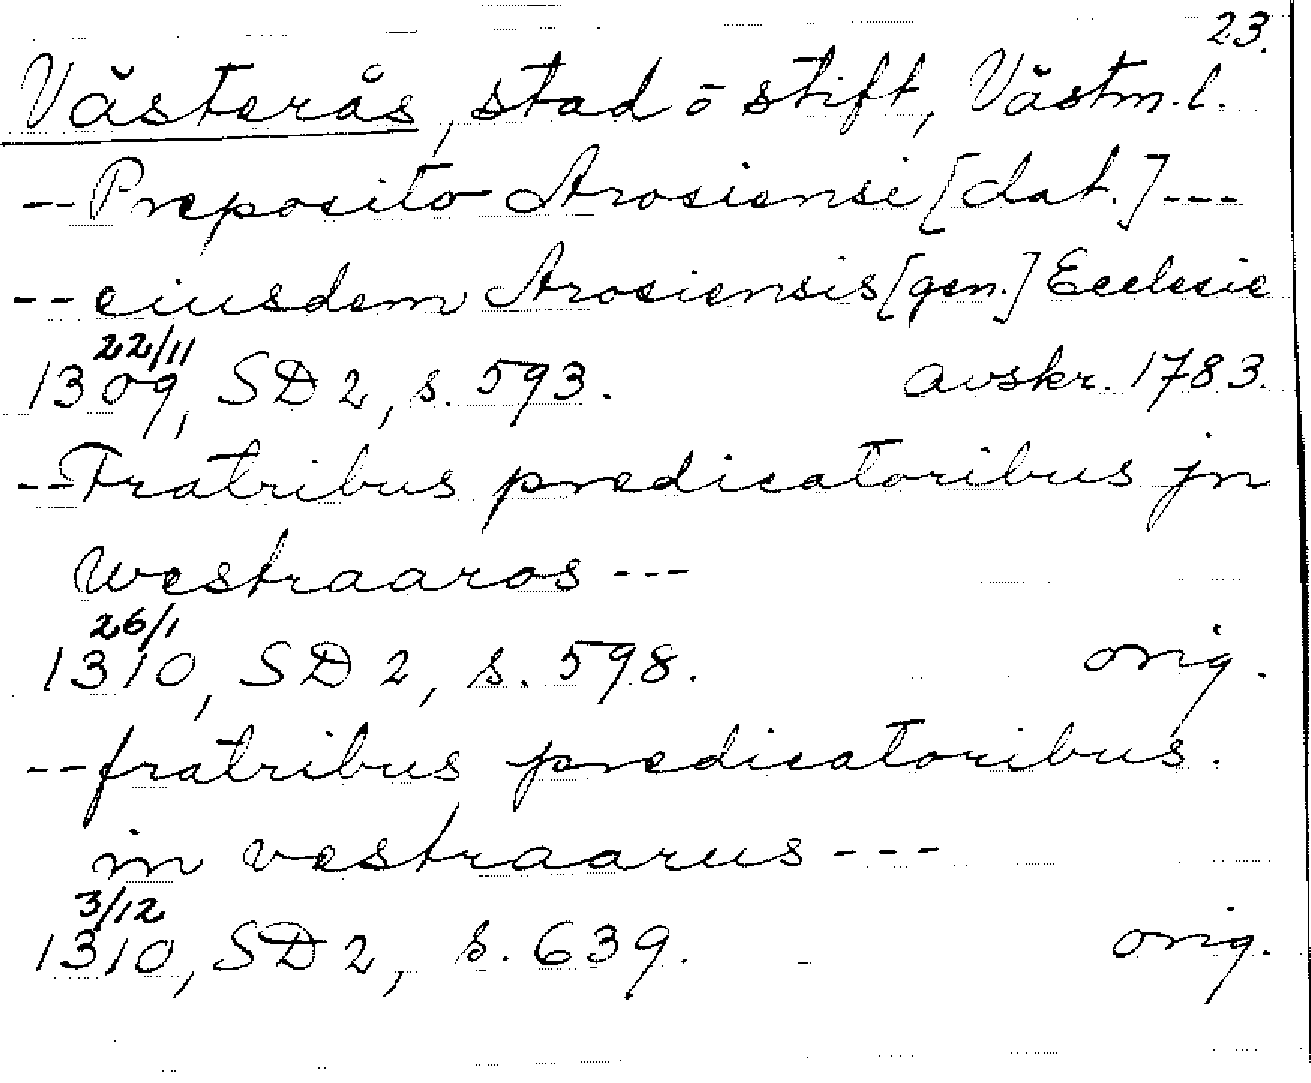 23.
Västerås, stad o stift, Västm. l.
-- Preposito Arosiensi [dat.] ---
-- eiusdem Arosiensis [gen.] Ecclesie
22/11
1309, SD 2, s. 593. avskr. 1783.
-- Fratribus predicatoribus jn
westraaros ---
26/1
1310, SD 2, s. 598. orig.
-- fratribus predicatoribus.
in vestraarus ---
3/12
1310, SD 2, s. 639. orig.